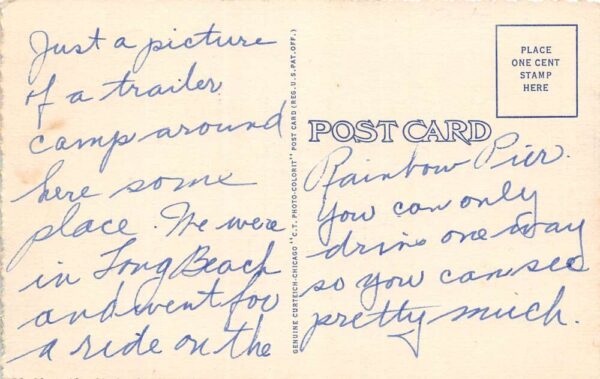 Just a picture
of a trailer
camp around
here some
place. We were
in Long Beach
and went for
a ride on the
GENUINE CURTEICH-CHICAGO "C.T. PHOTO-COLORIT" POST CARD (REG. U.S. PAT. OFF.)
PLACE
ONE CENT
STAMP
HERE
POST CARD
Rainbow Pier.
You can only
drive one way
so you can see
pretty much.